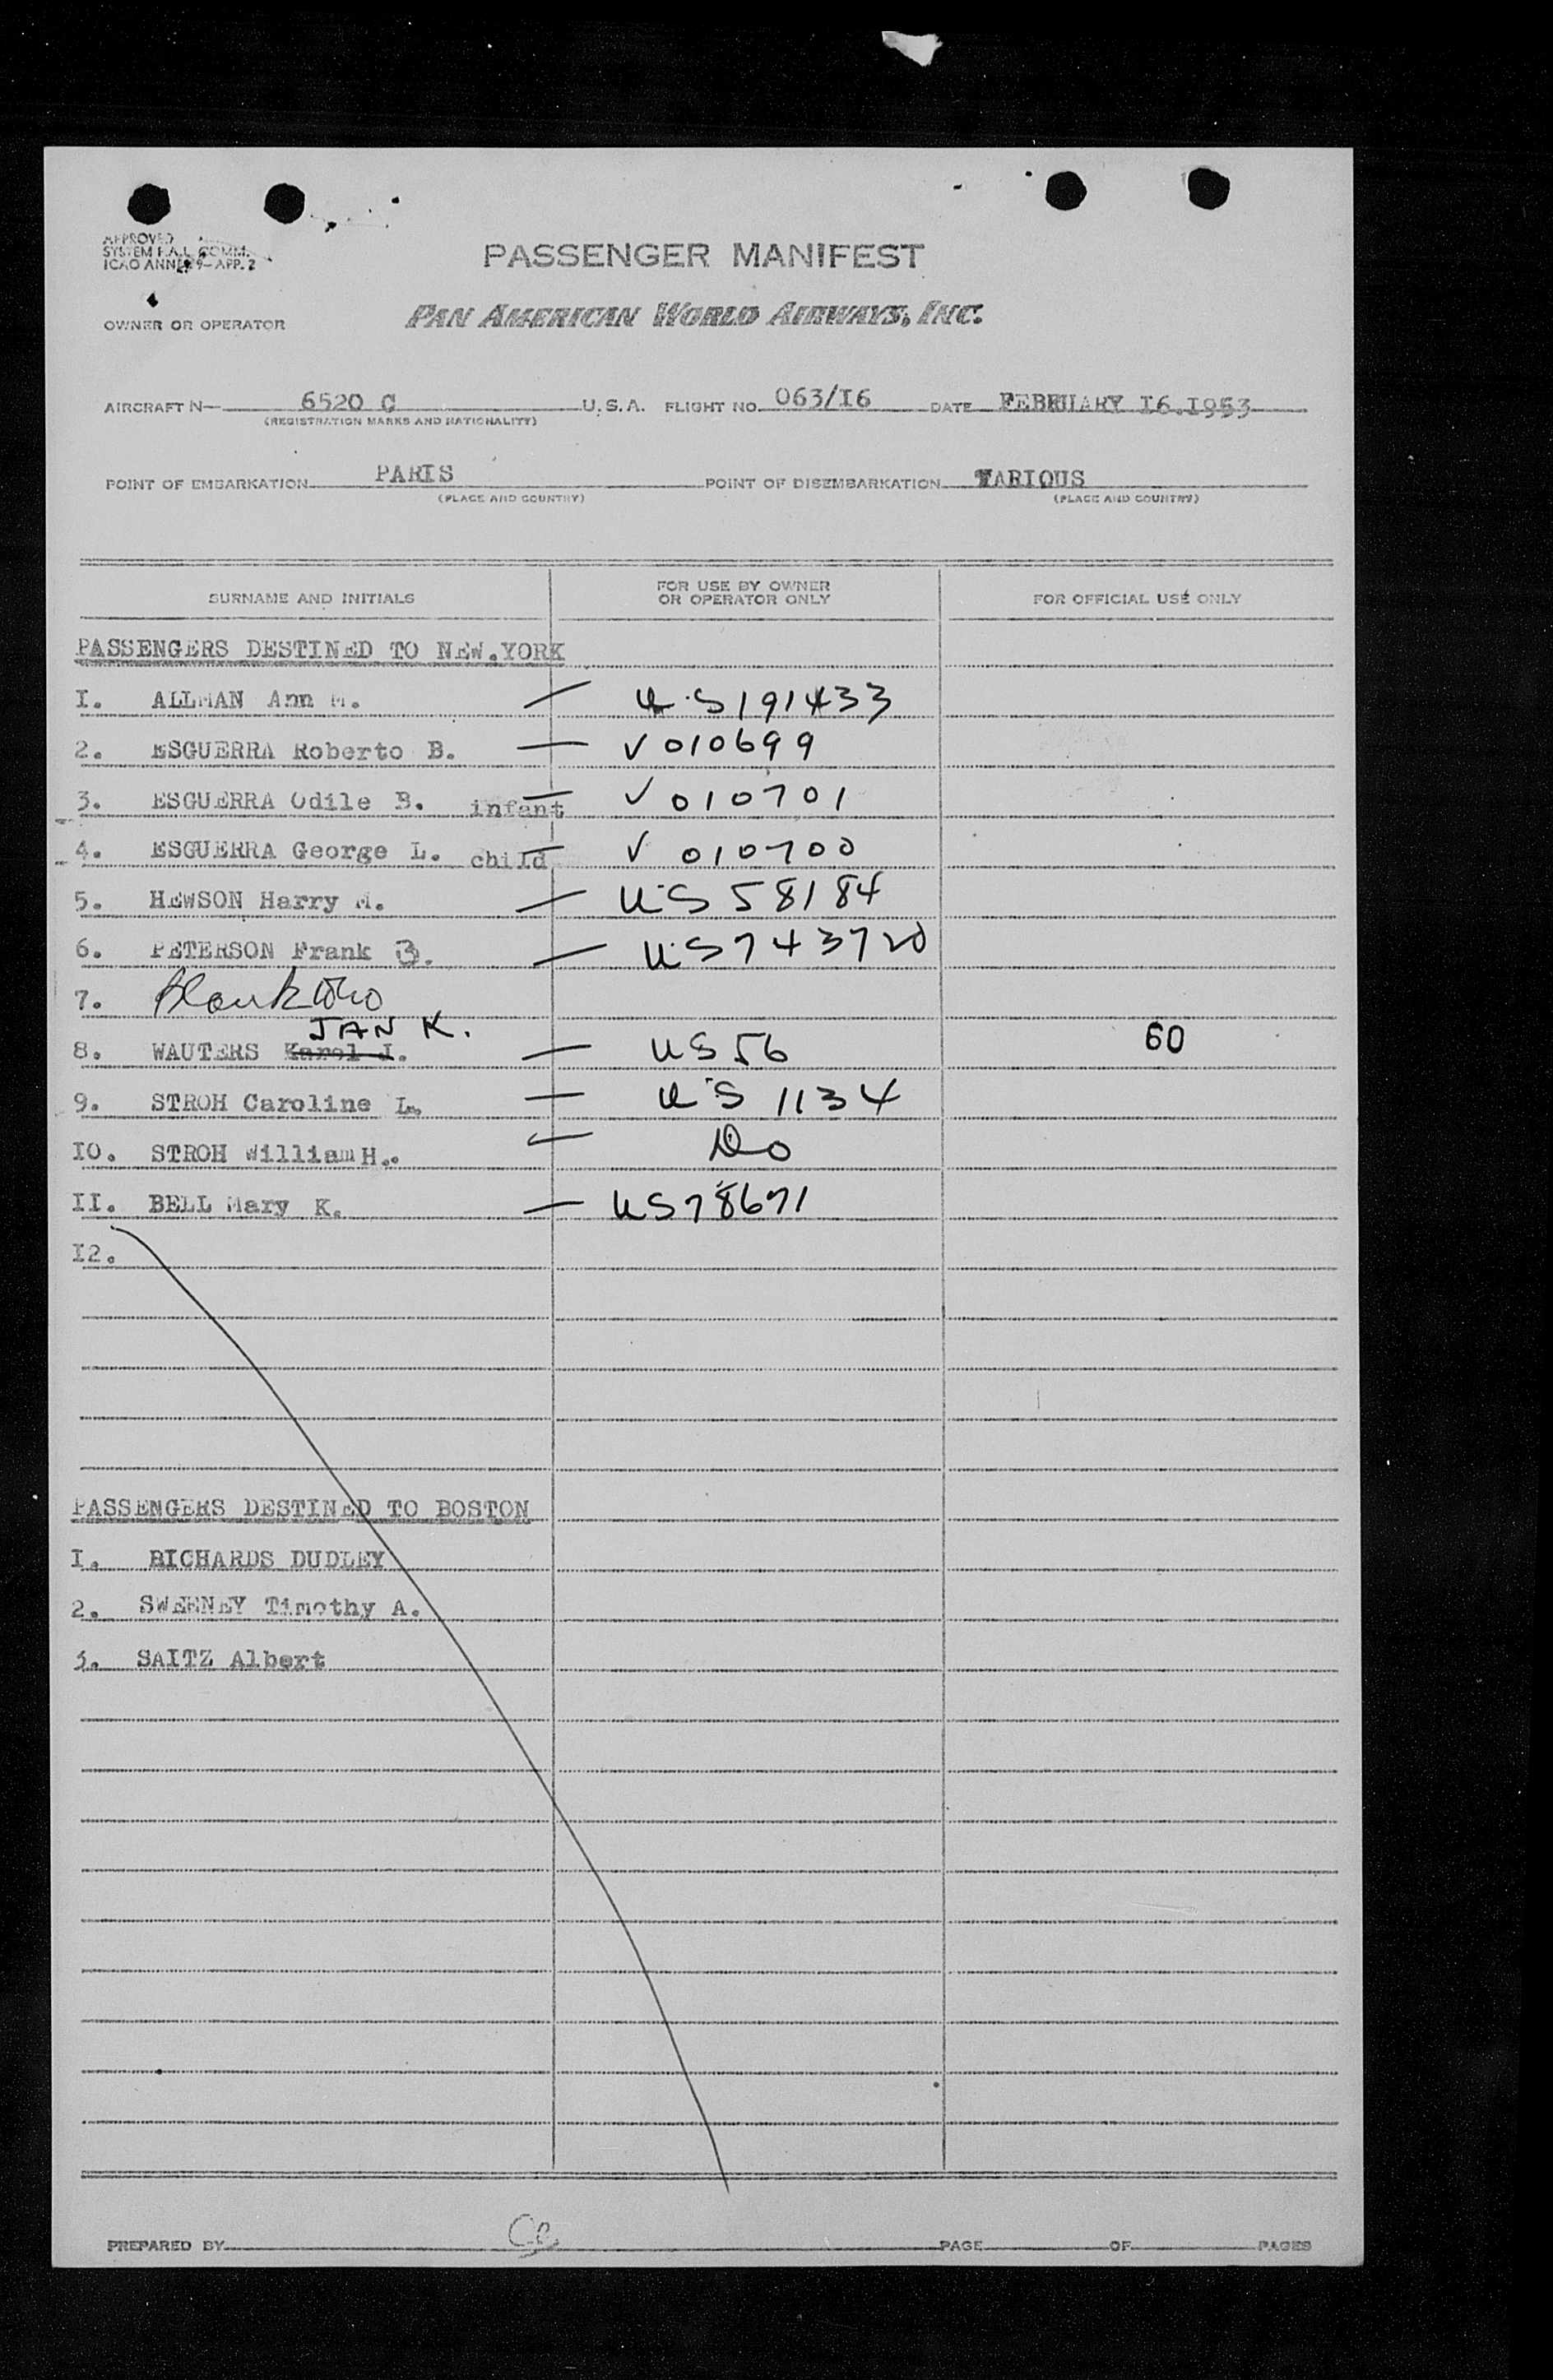 APPROVED
SYSTEM F.A.L. COMM.
ICAO ANNEX 9-APP. 2
PASSENGER MANIFEST
OWNER OR OPERATOR PAN AMERICAN WORLD AIRWAYS, INC.
AIRCRAFT N— 6520 C U.S.A. FLIGHT NO. 063/I6 DATE FEBRUARY I6.I953
(REGISTRATION MARKS AND NATIONALITY)
POINT OF EMBARKATION PARIS POINT OF DISEMBARKATION VARIOUS
(PLACE AND COUNTRY) (PLACE AND COUNTRY)
SURNAME AND INITIALS FOR USE BY OWNER OR OPERATOR ONLY FOR OFFICIAL USE ONLY
PASSENGERS DESTINED TO NEW.YORK
I. ALLMAN Ann M. — US191433
2. ESGUERRA Roberto B. — V010699
3. ESGUERRA Odile B. infant — V 010701
4. ESGUERRA George L. child — V 010700
5. HEWSON Harry M. — US 58184
6. PETERSON Frank B. — US743720
7. Blank
JAN K.
8. WAUTERS Karel J. — US 56 60
9. STROH Caroline L. — US 1134
IO. STROH William H.. — Do
II. BELL Mary K. — US78671
I2.
PASSENGERS DESTINED TO BOSTON
I. RICHARDS DUDLEY
2. SWEENEY Timothy A.
3. SAITZ Albert
PREPARED BY PAGE OF PAGES